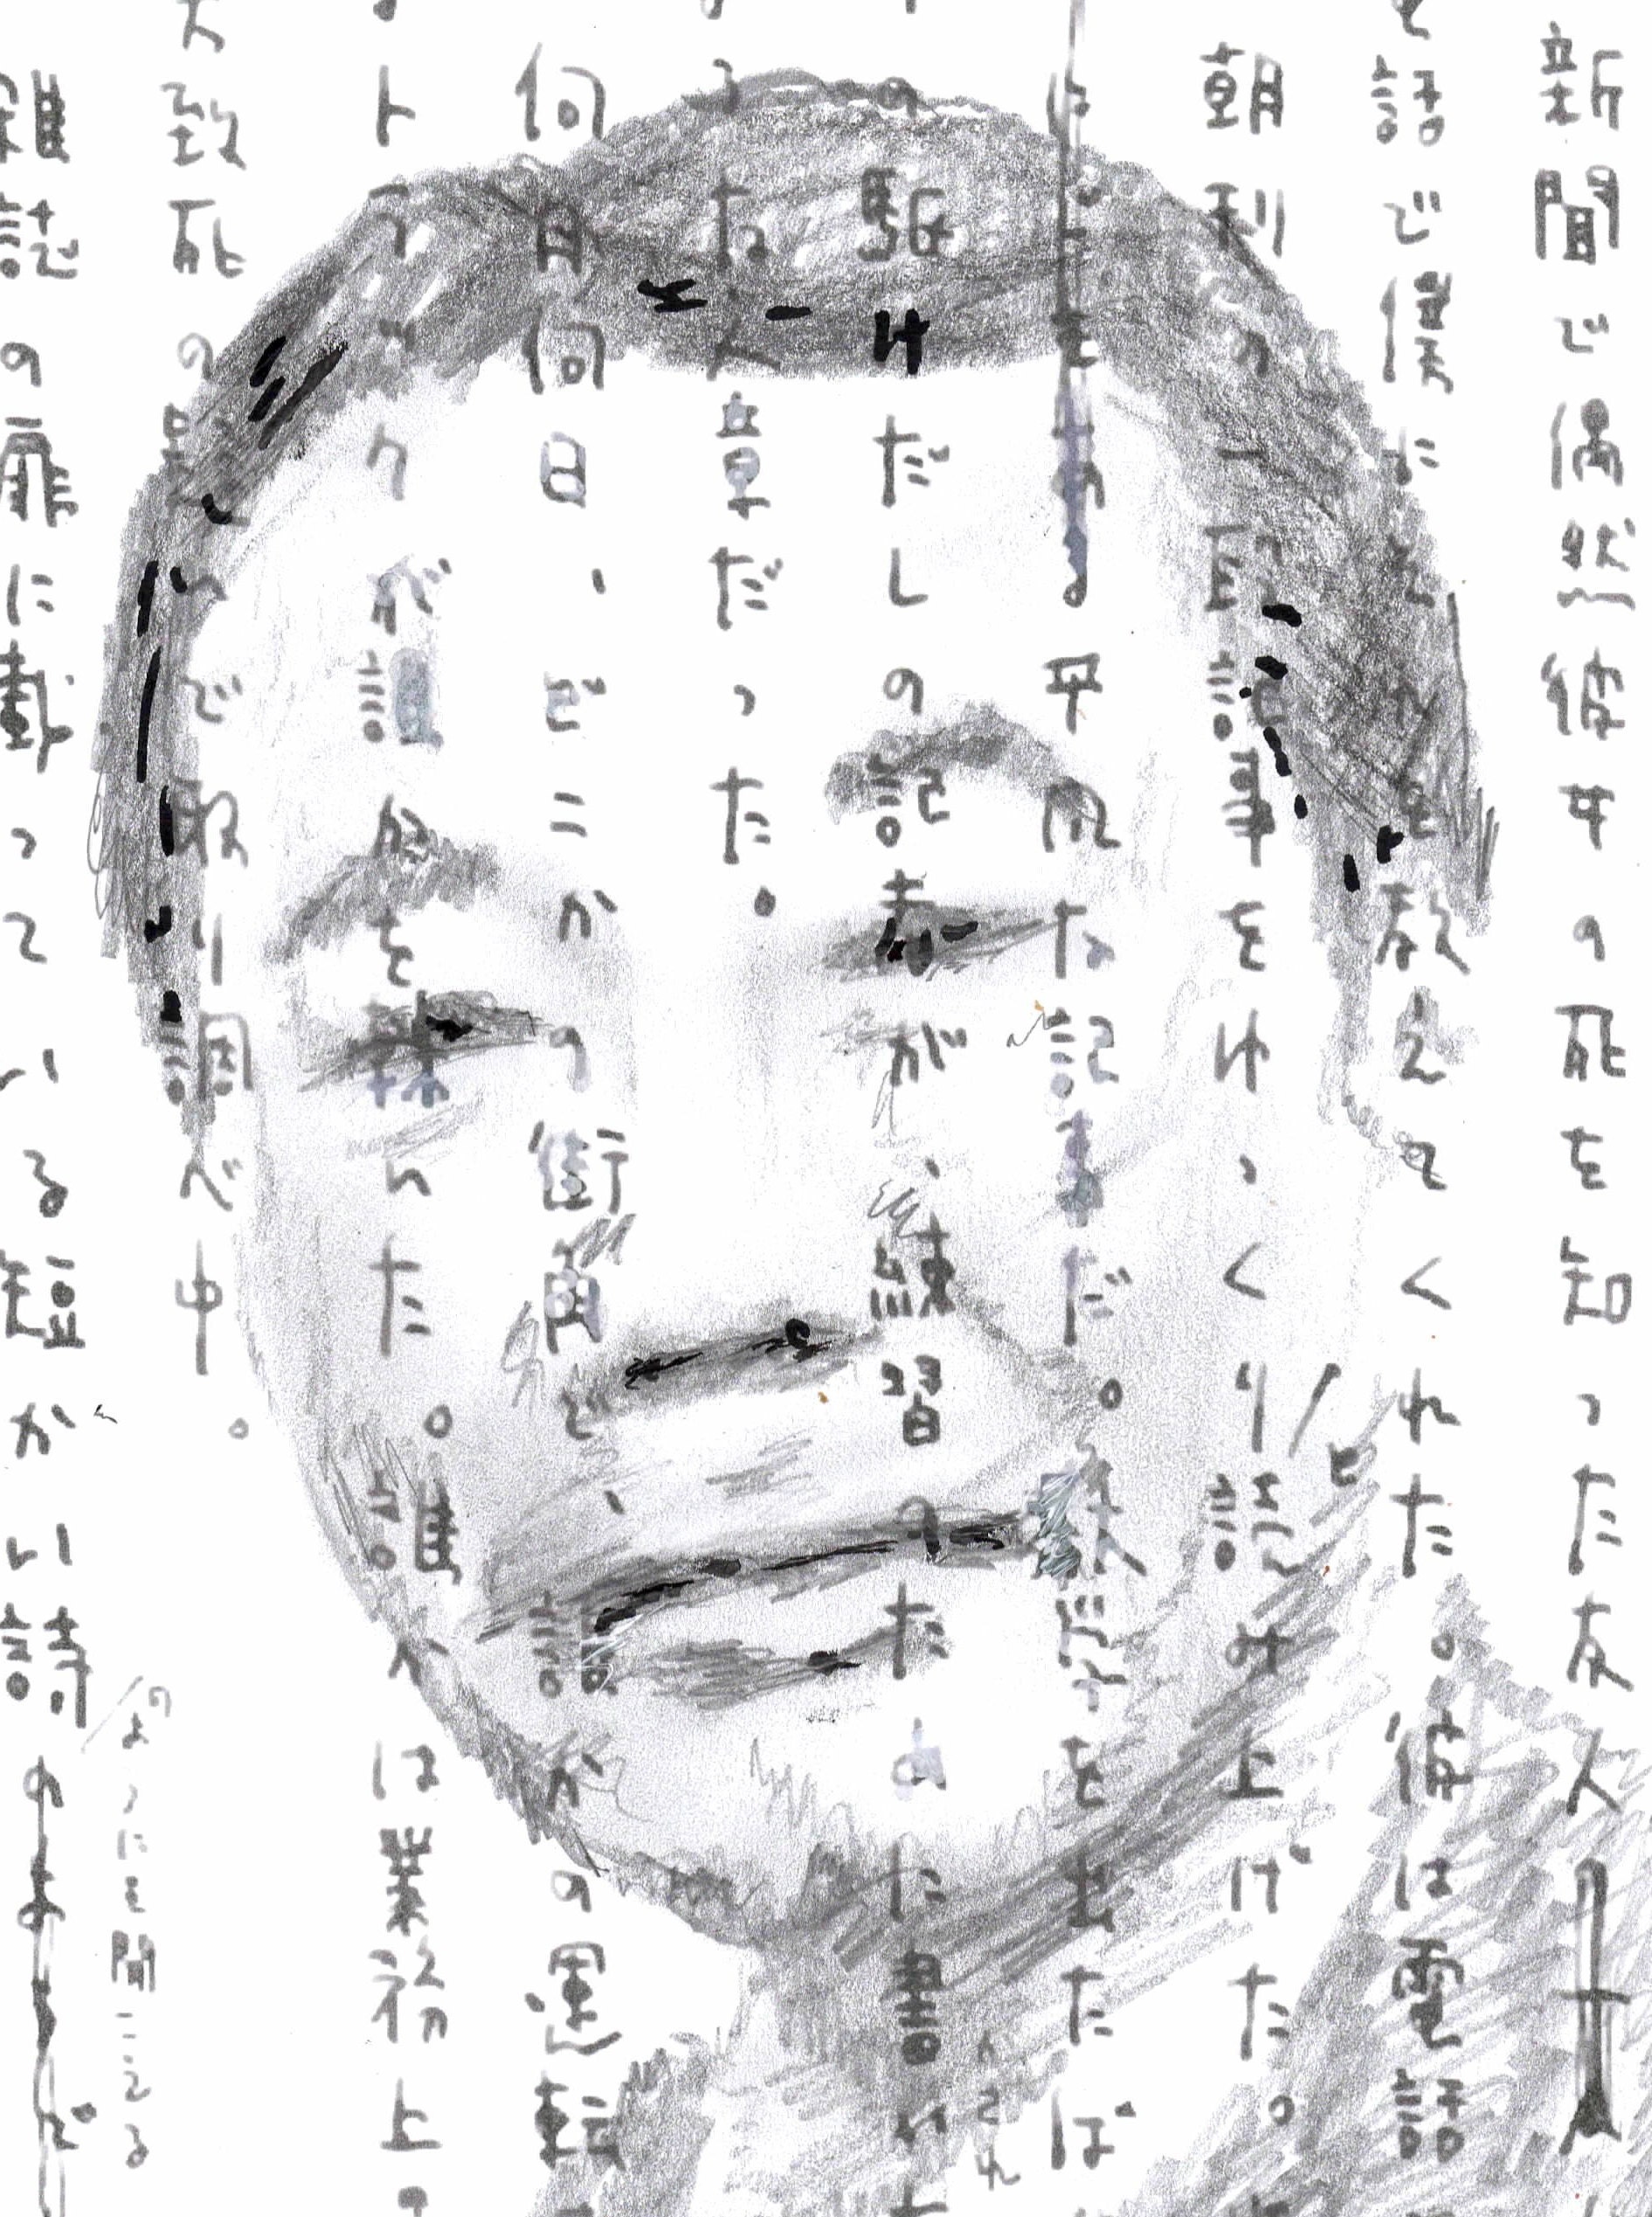 新聞で偶然彼女の死を知った友人
話で僕にそれを教えてくれた。彼は電話
朝刊の一段記事をゆっくり読み上げた。
平凡な記事だ。大学を出たば
駆けだしの記者が、練習のために書い
な文章だった。
何月何日、どこかの街角で、誰かの運転
トラックが誰かを轢いた。誰かは業務上
致死の疑いで取り調べ中。
のようにも聞こえる
雑誌の扉に載っている短かい詩